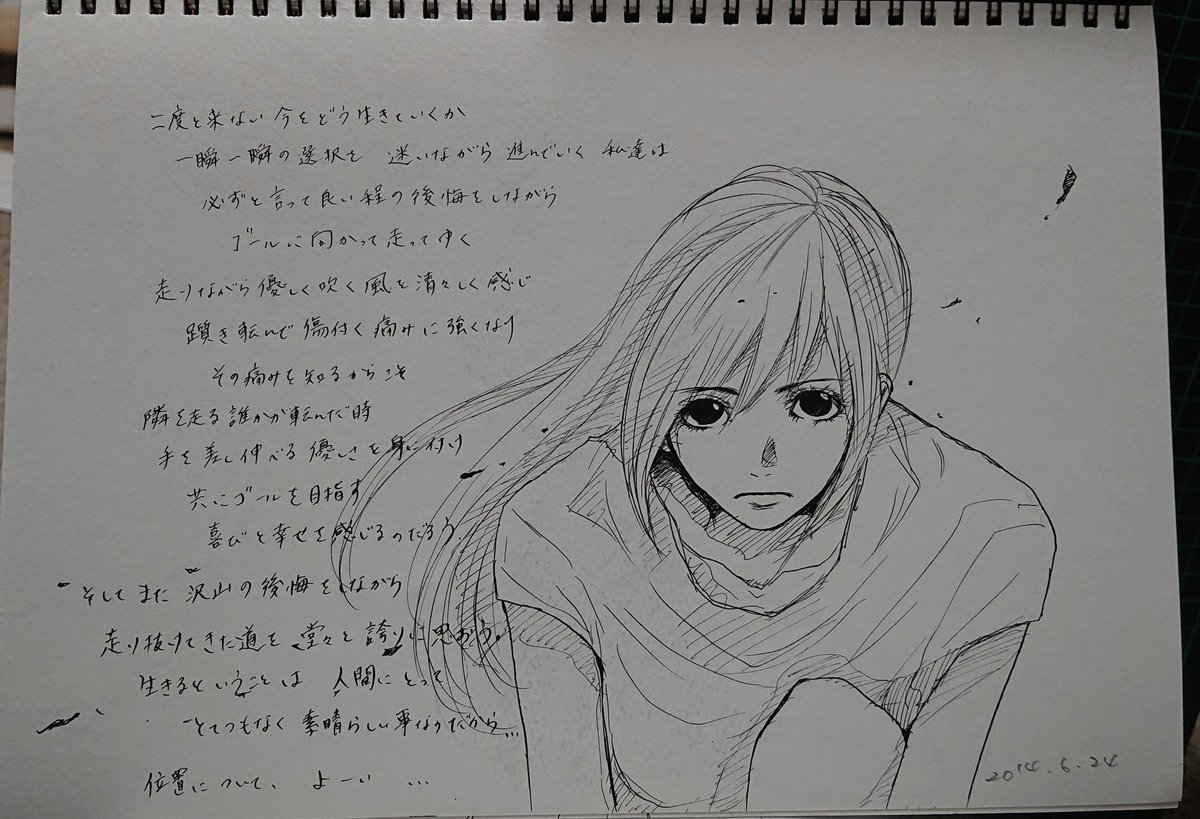 二度と来ない今をどう生きていくか
一瞬一瞬の選択を 迷いながら 進んでいく 私達は
必ずと言って良い程の後悔をしながら
ゴールに向かって走ってゆく
走りながら優しく吹く風を清々しく感じ
躓き転んで傷付く痛みに強くなり
その痛みを知るからこそ
隣を走る誰かが転んだ時
手を差し伸べる優しさを身に付け
共にゴールを目指す
喜びと幸せを感じるのだろう
そしてまた 沢山の後悔をしながら
走り抜けてきた道を 堂々と誇りに思おう。
生きるということは 人間にとって
とてつもなく 素晴らしい事なのだから…
位置について、 よーい …
2014.6.24